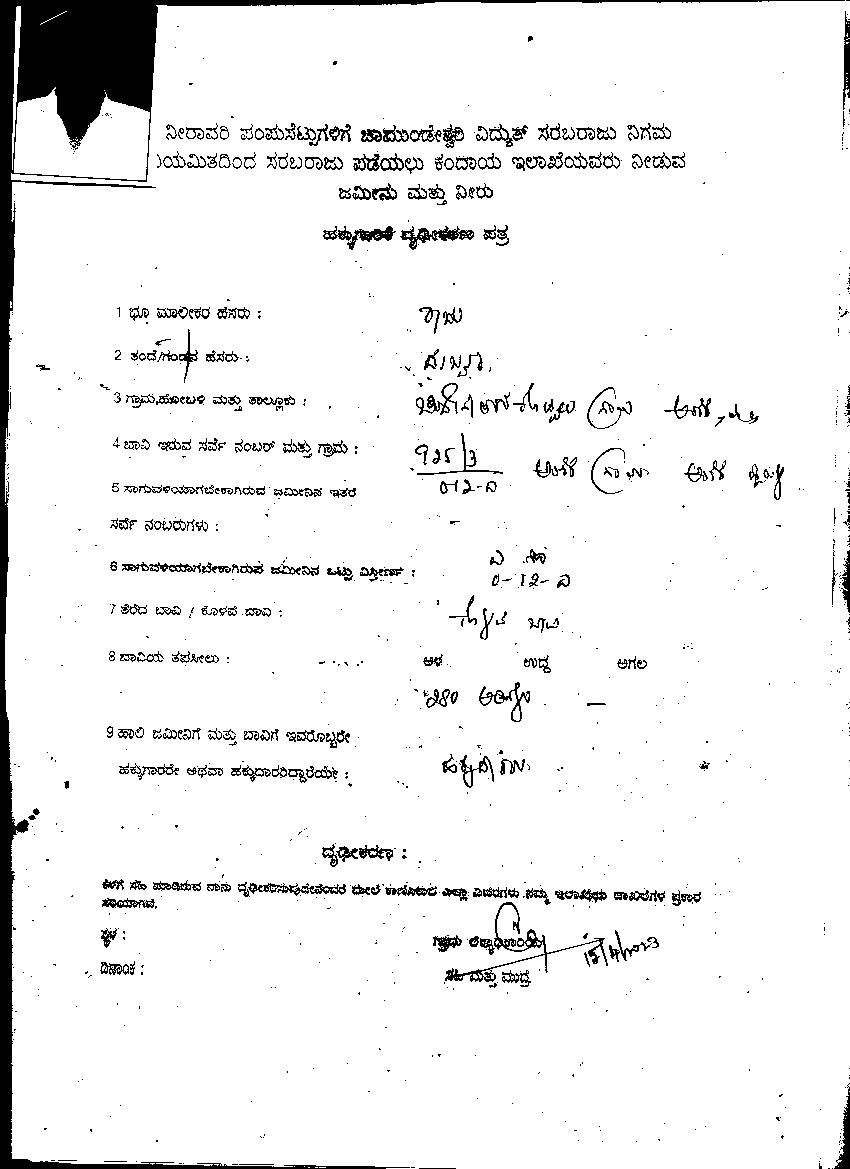 ನೀರಾವರಿ ಪಂಪುಸೆಟ್ಟುಗಳಿಗೆ ಚಾಮುಂಡೇಶ್ವರಿ ವಿದ್ಯುತ್ ಸರಬರಾಜು ನಿಗಮ
ಯಮಿತದಿಂದ ಸರಬರಾಜು ಪಡೆಯಲು ಕಂದಾಯ ಇಲಾಖೆಯವರು ನೀಡುವ
ಜಮೀನು ಮತ್ತು ನೀರು
ಹಕ್ಕುಗಾರಿಕೆ ದೃಢೀಕರಣ ಪತ್ರ
1 ಭೂ ಮಾಲೀಕರ ಹೆಸರು : ರಾಜು
2 ತಂದೆ/ಗಂಡನ ಹೆಸರು :
3 ಗ್ರಾಮ,ಹೋಬಳಿ ಮತ್ತು ತಾಲ್ಲೂಕು :
4 ಬಾವಿ ಇರುವ ಸರ್ವೆ ನಂಬರ್ ಮತ್ತು ಗ್ರಾಮ : 925/3
0-12-0
5 ಸಾಗುವಳಿಯಾಗಬೇಕಾಗಿರುವ ಜಮೀನಿನ ಇತರೆ
ಸರ್ವೆ ನಂಬರುಗಳು : –
ಎ ಗುಂ
6 ಸಾಗುವಳಿಯಾಗಬೇಕಾಗಿರುವ ಜಮೀನಿನ ಒಟ್ಟು ವಿಸ್ತೀರ್ಣ : 0-12-0
7 ತೆರೆದ ಬಾವಿ / ಕೊಳವೆ ಬಾವಿ : ಕೊಳವೆ ಬಾವಿ
8 ಬಾವಿಯ ತಪಸೀಲು : ಆಳ ಉದ್ದ ಅಗಲ
280 ಅಡಿಗಳು —
9 ಹಾಲಿ ಜಮೀನಿಗೆ ಮತ್ತು ಬಾವಿಗೆ ಇವರೊಬ್ಬರೇ
ಹಕ್ಕುಗಾರರೇ ಅಥವಾ ಹಕ್ಕುದಾರರಿದ್ದಾರೆಯೇ : ಹಕ್ಕುದಾರರು
ದೃಢೀಕರಣ :
ಕೆಳಗೆ ಸಹಿ ಮಾಡಿರುವ ನಾನು ದೃಢೀಕರಿಸುವುದೇನೆಂದರೆ ಮೇಲೆ ಕಾಣಿಸಿರುವ ಎಲ್ಲಾ ವಿವರಗಳು ನಮ್ಮ ಇಲಾಖೆಯ ದಾಖಲೆಗಳ ಪ್ರಕಾರ
ಸರಿಯಾಗಿವೆ.
ಸ್ಥಳ : ಗ್ರಾಮ ಲೆಕ್ಕಾಧಿಕಾರಿಯ
ದಿನಾಂಕ : ಸಹಿ ಮತ್ತು ಮುದ್ರೆ